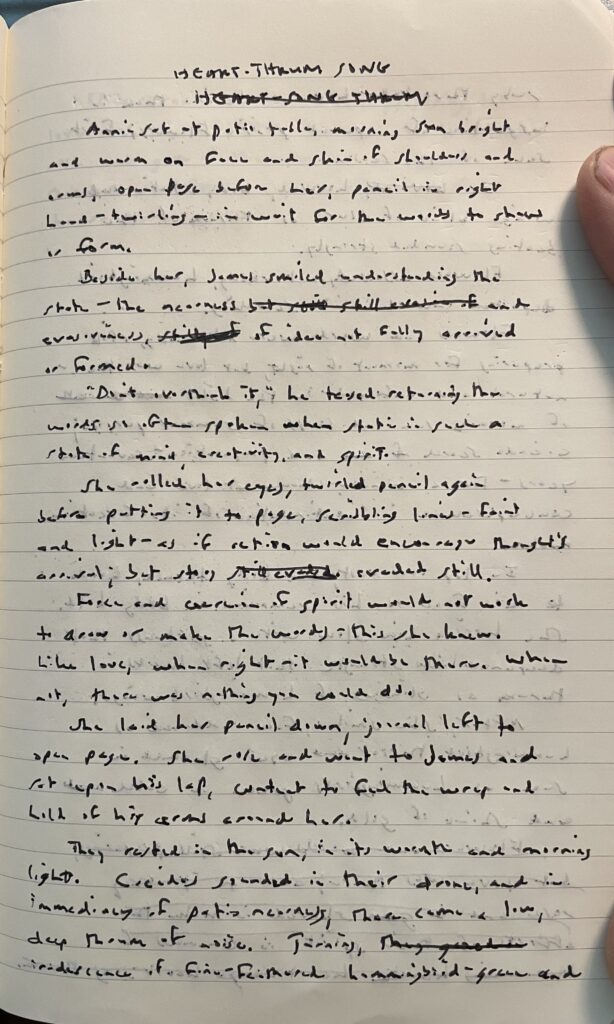 HEART-THRUM SONG
HEART-SONG THRUM
Annie sat at patio table, morning sun bright
and warm on face and skin of shoulders and
arms, open page before her, pencil in right
hand - twirling - in wait for the words to show
or form.
Beside her, James smiled understanding the
state - the nearness but still evasion of and
evasiveness, still of of idea not fully arrived
or formed.
"Don't overthink it," he teased returning the
words so often spoken when static in such a
state of mind, creativity, and spirit.
She rolled her eyes, twirled pencil again
before putting it to page, scribbling lines - faint
and light - as if action would encourage thought's
arrival; but story still evaded evaded still.
Force and coercion of spirit would not work
to draw or make the words - this she knew.
Like love, when right - it would be there. When
not, there was nothing you could do.
She laid her pencil down, journal left to
open page. She rose and went to James and
sat upon his lap, content to feel the wrap and
hold of his arms around her.
They rested in the sun, in its warmth and morning
light. Cicadas sounded in their drone, and in
immediacy of patio nearness, there came a low,
deep thrum of noise. Turning, they
iridescence of fine-feathered hummingbird - green and